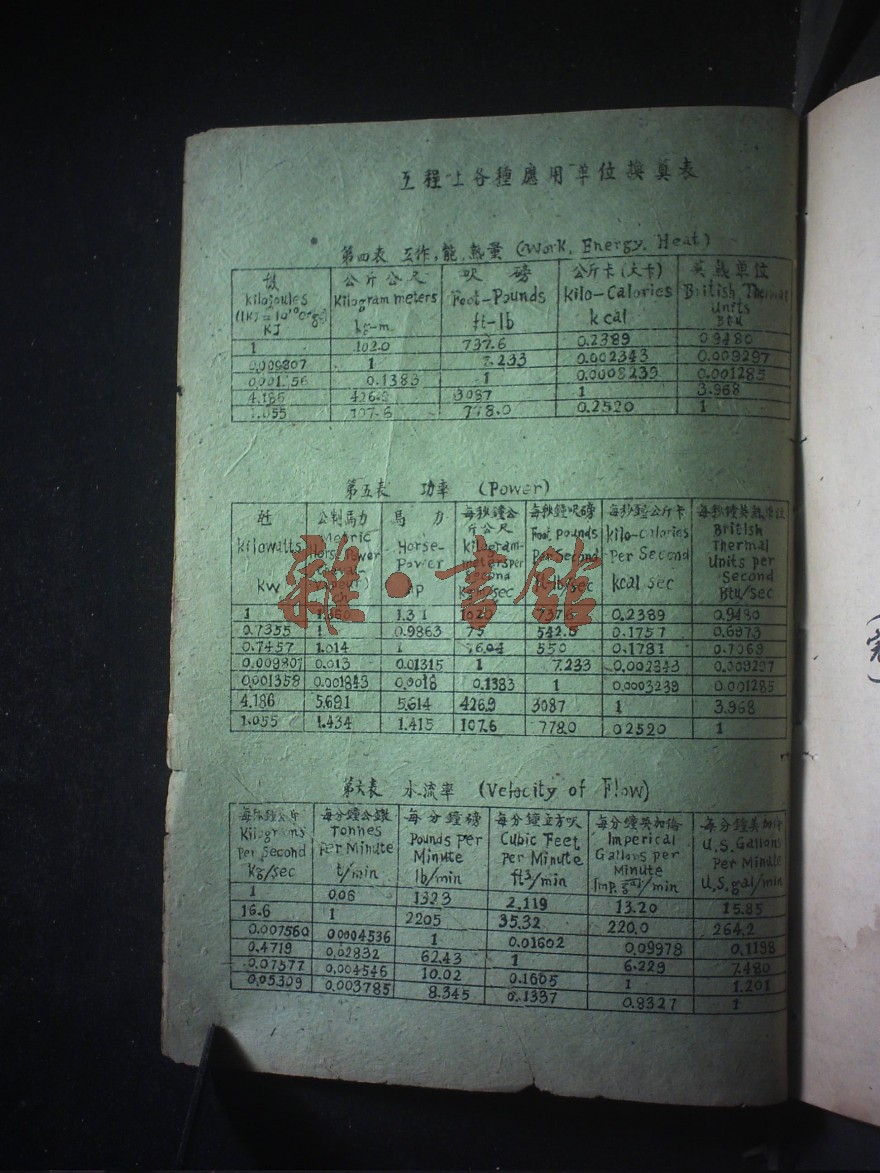 工程上各種應用單位換算表
第四表 工作,能,熱量 (Work, Energy, Heat)
公斤公尺 呎 磅 公斤卡(大卡) 英熱單位
Kilojoules Kilogram meters Foot-Pounds Kilo-Calories British Thermal Units
KJ kg-m ft-lb k cal Btu
1 102.0 737.6 0.2389 0.9480
0.009807 1 7.233 0.002343 0.009297
0.1383 1 0.001285
4.186 3087 1 3.968
1.055 107.6 778.0 0.2520 1
第五表 功率 (Power)
公制馬力 馬 力 每秒鐘公斤公尺 每秒鐘呎磅 每秒鐘公斤卡 每秒鐘英熱單位
Kilowatts Metric Horse-Power Foot pounds Per Second kilo-calories Per Second British Thermal Units per Second
kw kcal sec Btu/sec
1 0.2389 0.9480
0.7355 1 0.9863 75 542.5 0.1757 0.6973
0.7457 1.014 1 76.04 550 0.1781 0.7069
0.009807 0.013 0.01315 1 7.233 0.002343 0.009297
0.001358 0.001843 0.0018 0.1383 1 0.0003239 0.001285
4.186 5.691 5.614 426.9 3087 1 3.968
1.055 1.434 1.415 107.6 778.0 02520 1
第六表 水流率 (Velocity of Flow)
每秒鐘公斤 每分鐘公鐵 每分鐘磅 每分鐘立方呎 每分鐘英加侖 每分鐘美加侖
Kilograms Per Second Tonnes Per Minute Pounds Per Minute Cubic Feet Per Minute Imperical Gallons per Minute U.S. Gallons Per Minute
Kg/sec t/min lb/min ft³/min Imp. gal/min U.S. gal/min
1 0.06 132.3 2.119 13.20 15.85
16.6 1 2205 35.32 220.0 264.2
0.007560 0.0004536 1 0.01602 0.09978 0.1198
0.4719 0.02832 62.43 1 6.229 7.480
0.07577 0.004546 10.02 0.1605 1 1.201
0.05309 0.003785 8.345 0.1337 0.8327 1
雜·書館